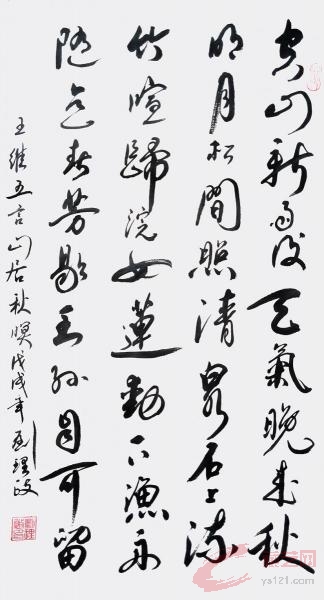 空山新雨后天气晚来秋
明月松間照清泉石上流
竹喧歸浣女蓮動下漁舟
随意春芳歇王孙自可留
王維五言山居秋暝戊戌年
ys121.com